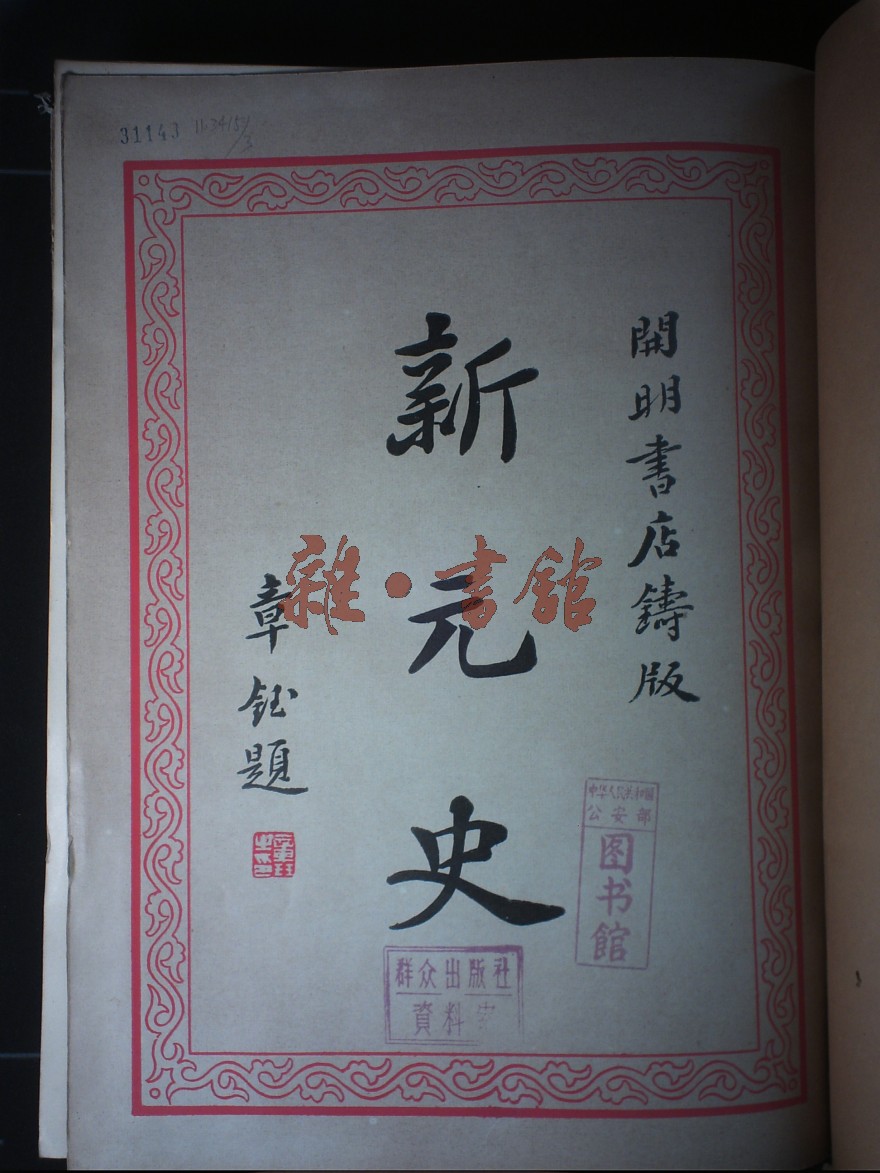 31143
開明書店鑄版
新元史
章鈺題
雜·書館
中华人民共和國
公安部
图书馆
群众出版社
資料室